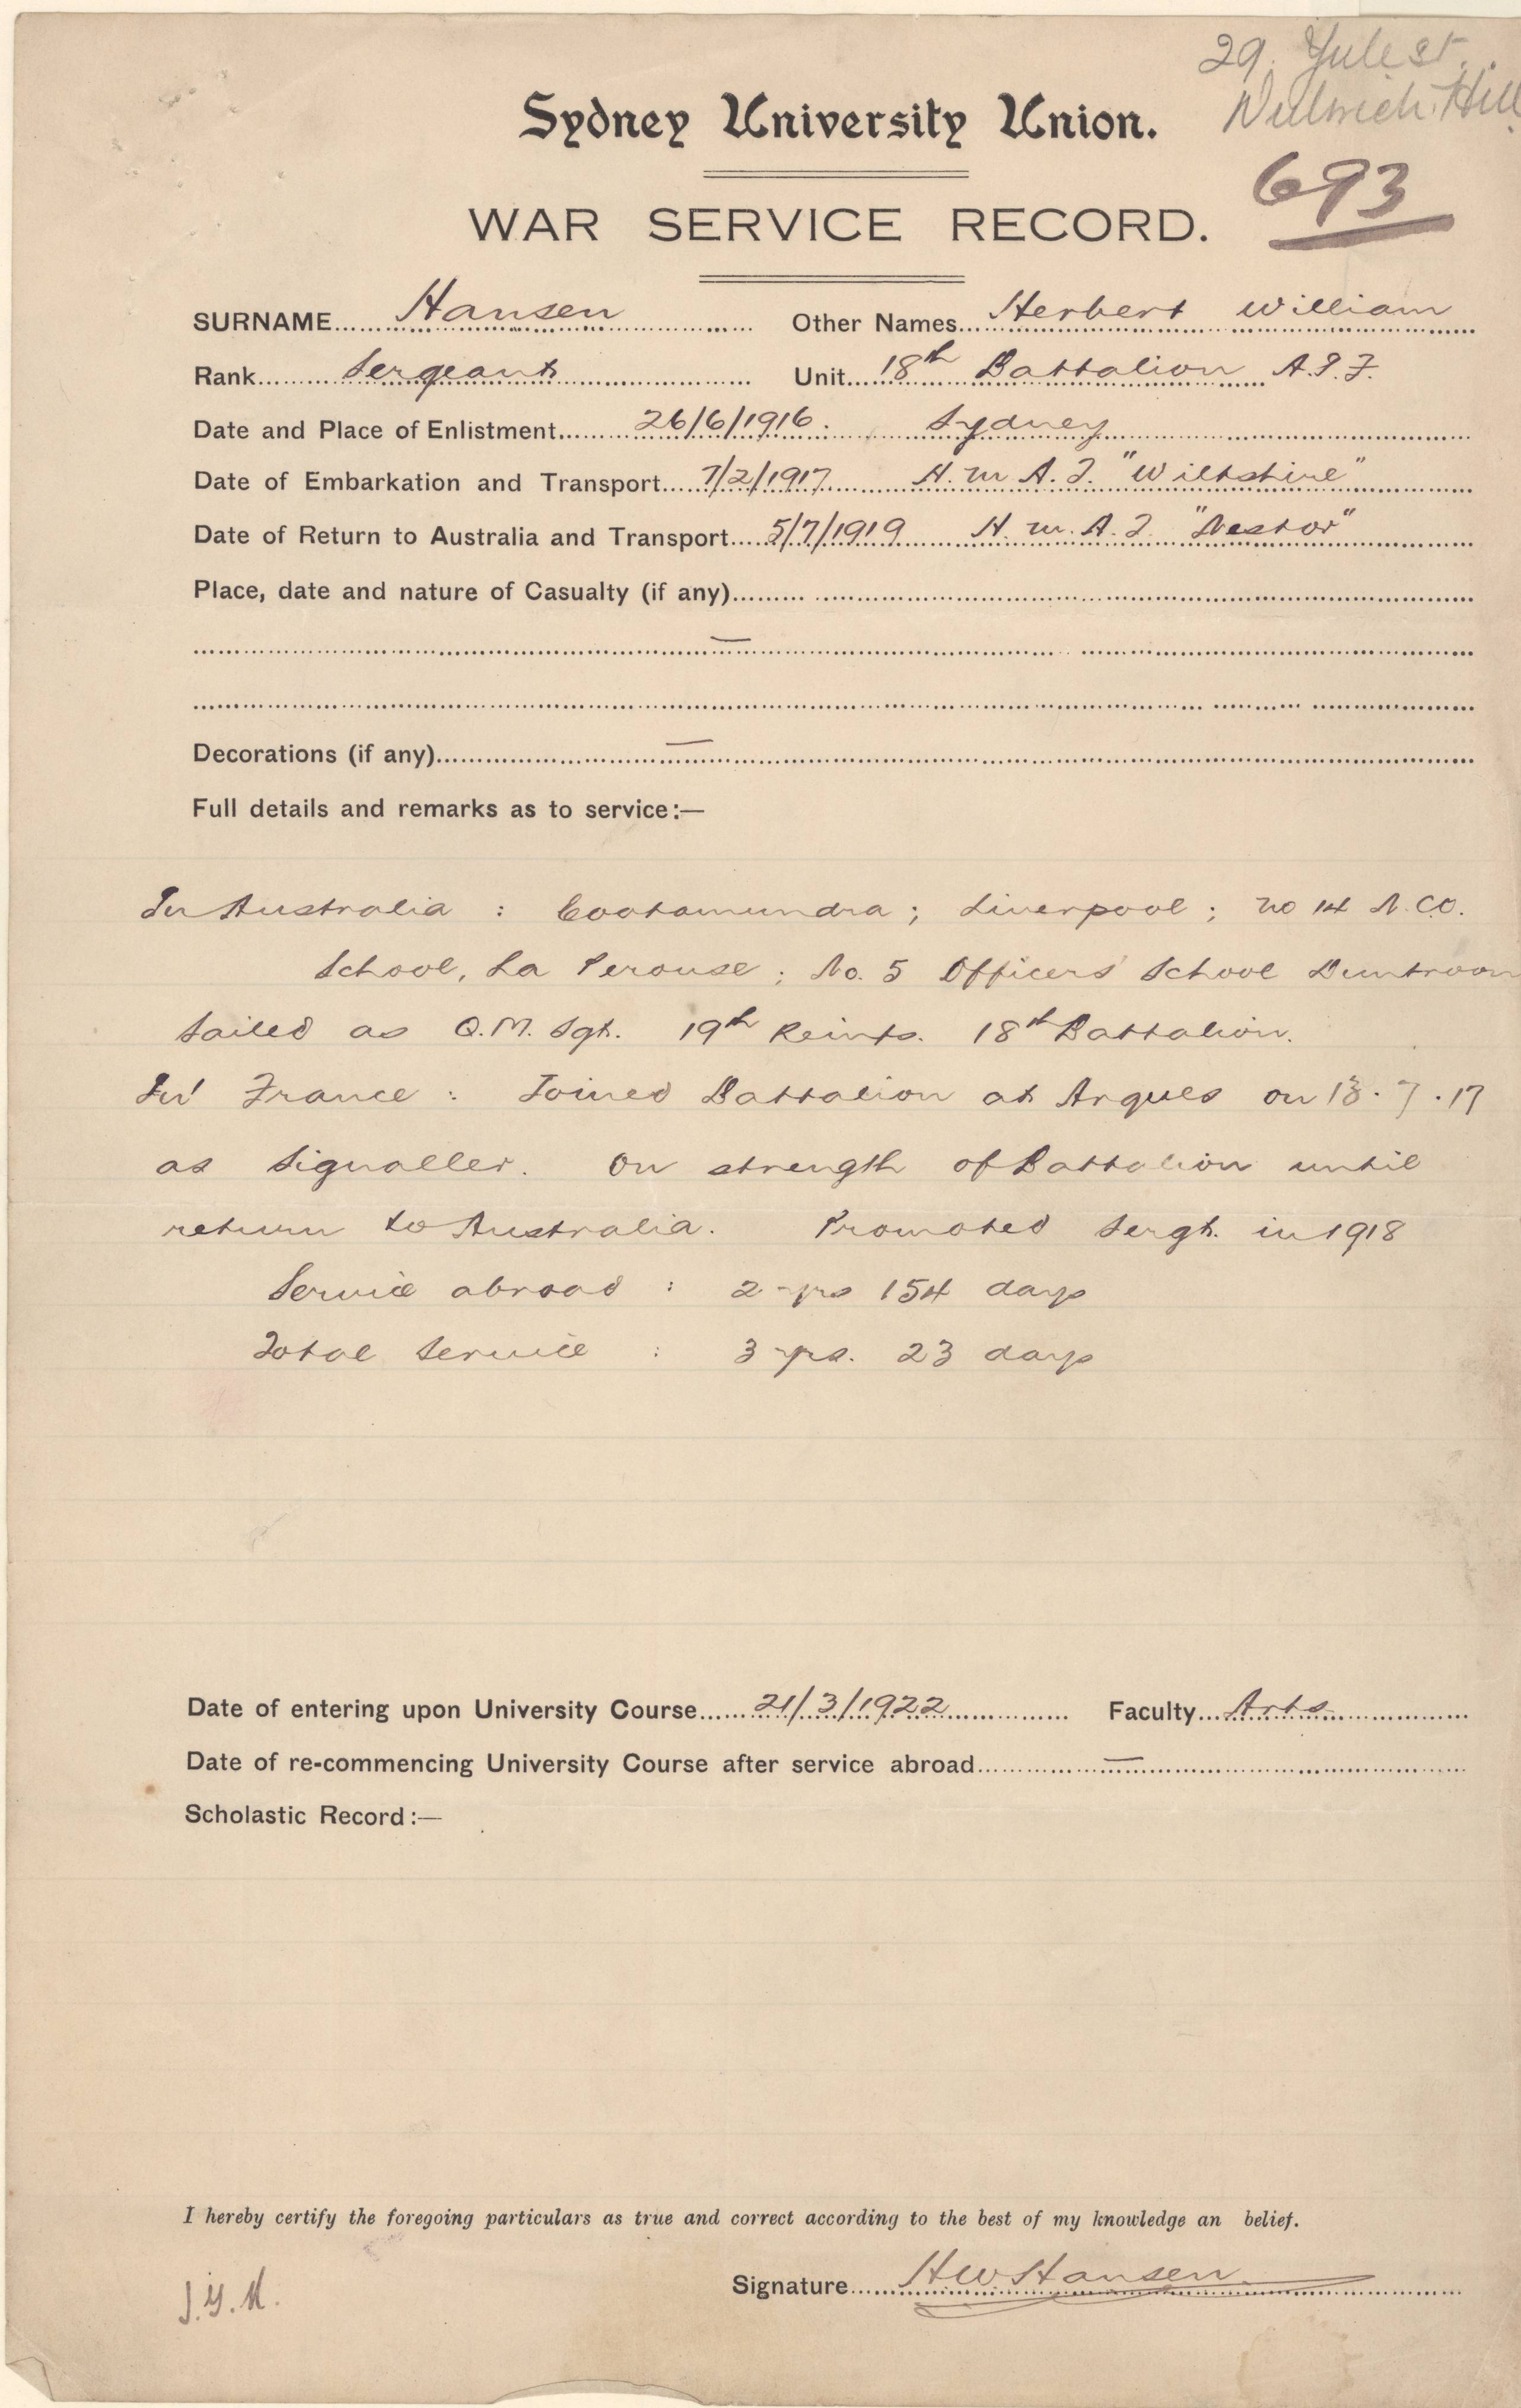 29. Yule St.
Dulwich Hill
Sydney University Union.
693
WAR SERVICE RECORD.
SURNAME Hansen Other Names Herbert William
Rank Sergeant Unit 18th Battalion A.I.F.
Date and Place of Enlistment 26/6/1916. Sydney
Date of Embarkation and Transport 7/2/1917 H.M.A.T. "Wiltshire"
Date of Return to Australia and Transport 5/7/1919 H.M.A.T. "Nestor"
Place, date and nature of Casualty (if any)
—
Decorations (if any) —
Full details and remarks as to service:—
In Australia : Cootamundra ; Liverpool ; No 14 N.C.O.
School, La Perouse ; No. 5 Officers' School Duntroon
Sailed as Q.M. Sgt. 19th Reinfts. 18th Battalion.
In France : Joined Battalion at Arques on 13.7.17
as Signaller. On strength of Battalion until
return to Australia. Promoted Sergt. in 1918
Service abroad : 2 yrs 154 days
Total Service : 3 yrs. 23 days
Date of entering upon University Course 21/3/1922 Faculty Arts
Date of re-commencing University Course after service abroad —
Scholastic Record :—
I hereby certify the foregoing particulars as true and correct according to the best of my knowledge an belief.
Signature H W Hansen
J.G.H.